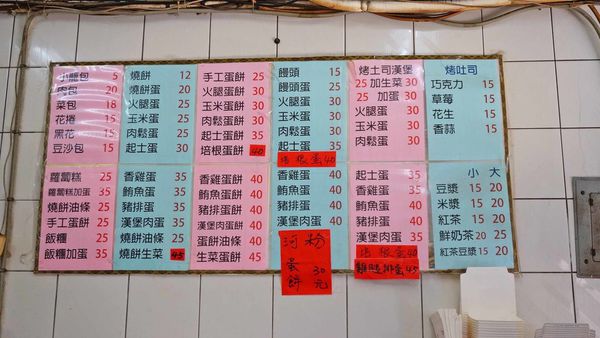 小籠包 5
肉包 20
菜包 18
花捲 15
黑花 15
豆沙包 15
燒餅 12
燒餅蛋 20
火腿蛋 25
玉米蛋 25
肉鬆蛋 25
起士蛋 30
手工蛋餅 25
火腿蛋餅 30
玉米蛋餅 30
肉鬆蛋餅 30
起士蛋餅 35
培根蛋餅 40
饅頭 15
饅頭蛋 25
火腿蛋 30
玉米蛋 30
肉鬆蛋 30
培根蛋40
烤土司漢堡
25 加生菜 30
25 加蛋 30
火腿蛋 30
玉米蛋 30
肉鬆蛋 30
烤吐司
巧克力 15
草莓 15
花生 15
香蒜 15
蘿蔔糕 25
蘿蔔糕加蛋 35
燒餅油條 25
手工蛋餅 25
飯糰 25
飯糰加蛋 35
香雞蛋 35
鮪魚蛋 35
豬排蛋 35
漢堡肉蛋 35
燒餅油條 35
燒餅生菜 45
香雞蛋餅 40
鮪魚蛋餅 40
豬排蛋餅 40
漢堡肉蛋餅 40
蛋餅油條 40
生菜蛋餅 40
香雞蛋 40
鮪魚蛋 40
豬排蛋 40
漢堡肉蛋 40
河粉
蛋餅 30元
起士蛋 35
香雞蛋 35
鮪魚蛋 35
豬排蛋 35
漢堡肉蛋 35
培根蛋40
雞腿排蛋45
小 大
豆漿 15 20
米漿 15 20
紅茶 15 20
鮮奶茶 20 25
紅茶豆漿 15 20